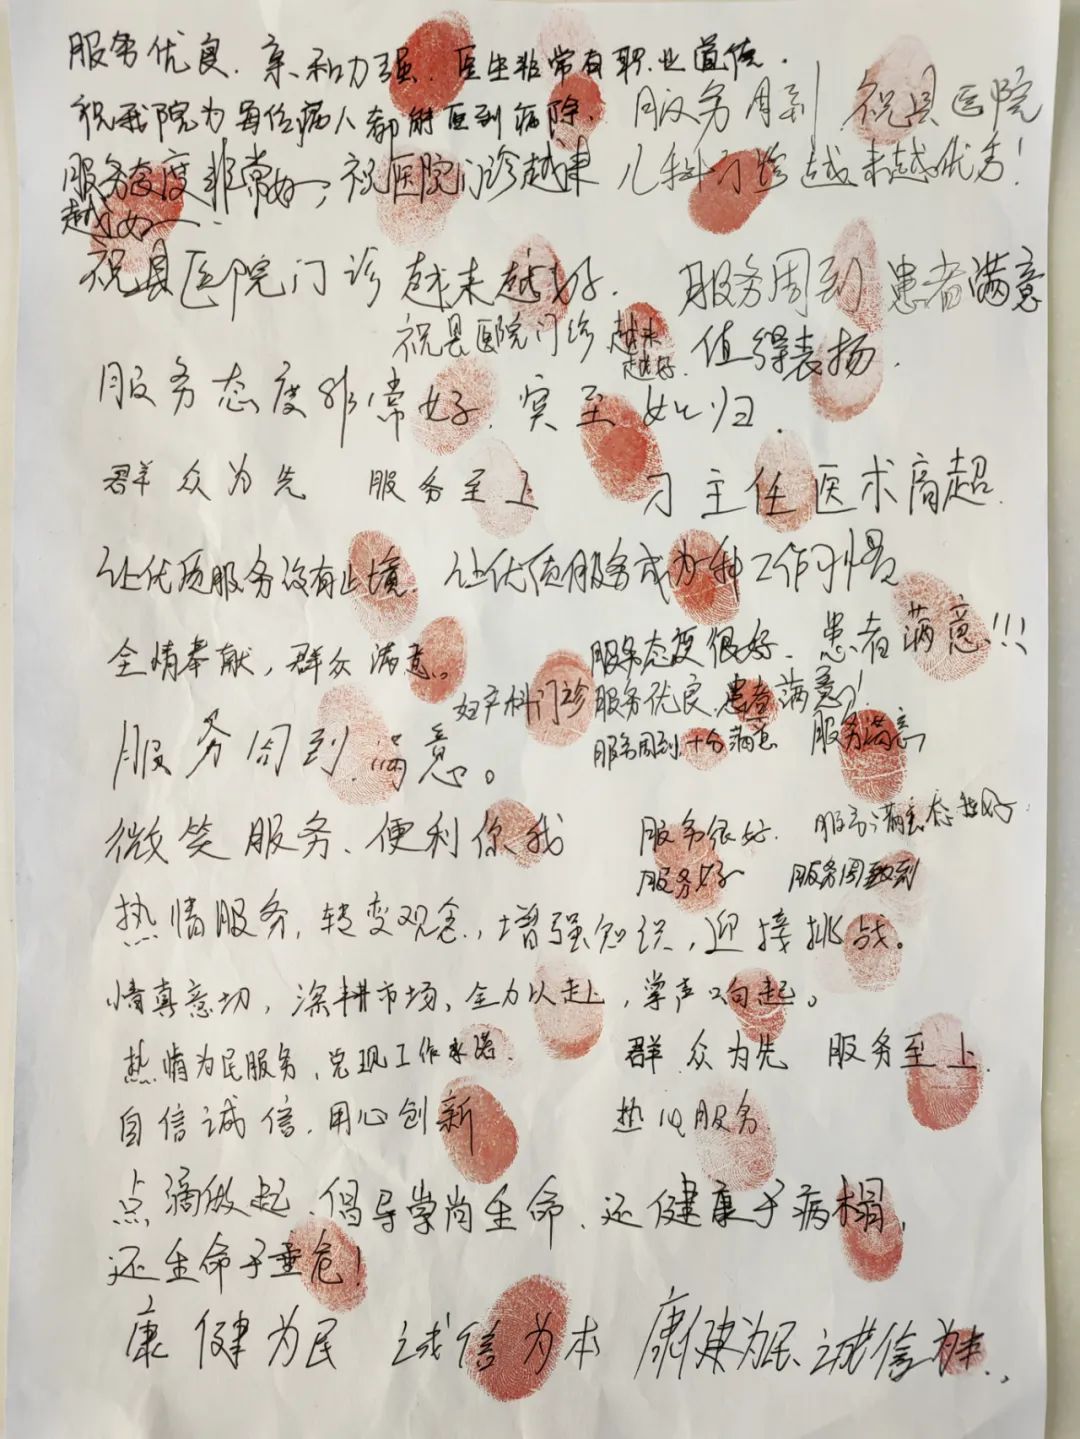 服务优良、亲和力强、医生非常有职业道德。
祝我院为每位病人都能医到病除。
服务周到 祝县医院
儿科门诊越来越优秀！
服务态度非常好，祝医院门诊越来
越好
祝县医院门诊越来越好。
服务周到 患者满意
值得表扬。
祝县医院门诊越来
越好。
服务态度非常好，宾至如归。
群众为先 服务至上
刁主任医术高超
让优质服务没有止境。让优质服务成为一种工作习惯
全情奉献，群众满意。
服务态度很好、患者满意！！！
妇产科门诊服务优良，患者满意！
服务周到满意。
服务周到，十分满意 服务满意
微笑服务、便利你我
服务很好。
服务好
服务周到
热情服务，转变观念，增强知识，迎接挑战。
情真意切，深耕市场，全力以赴，掌声响起。
热情为民服务，兑现工作承诺。
群众为先 服务至上
自信诚信，用心创新
热心服务
点滴做起、倡导崇尚生命、还健康于病榻，
还生命于垂危！
康健为民 诚信为本 康健为民、诚信为本